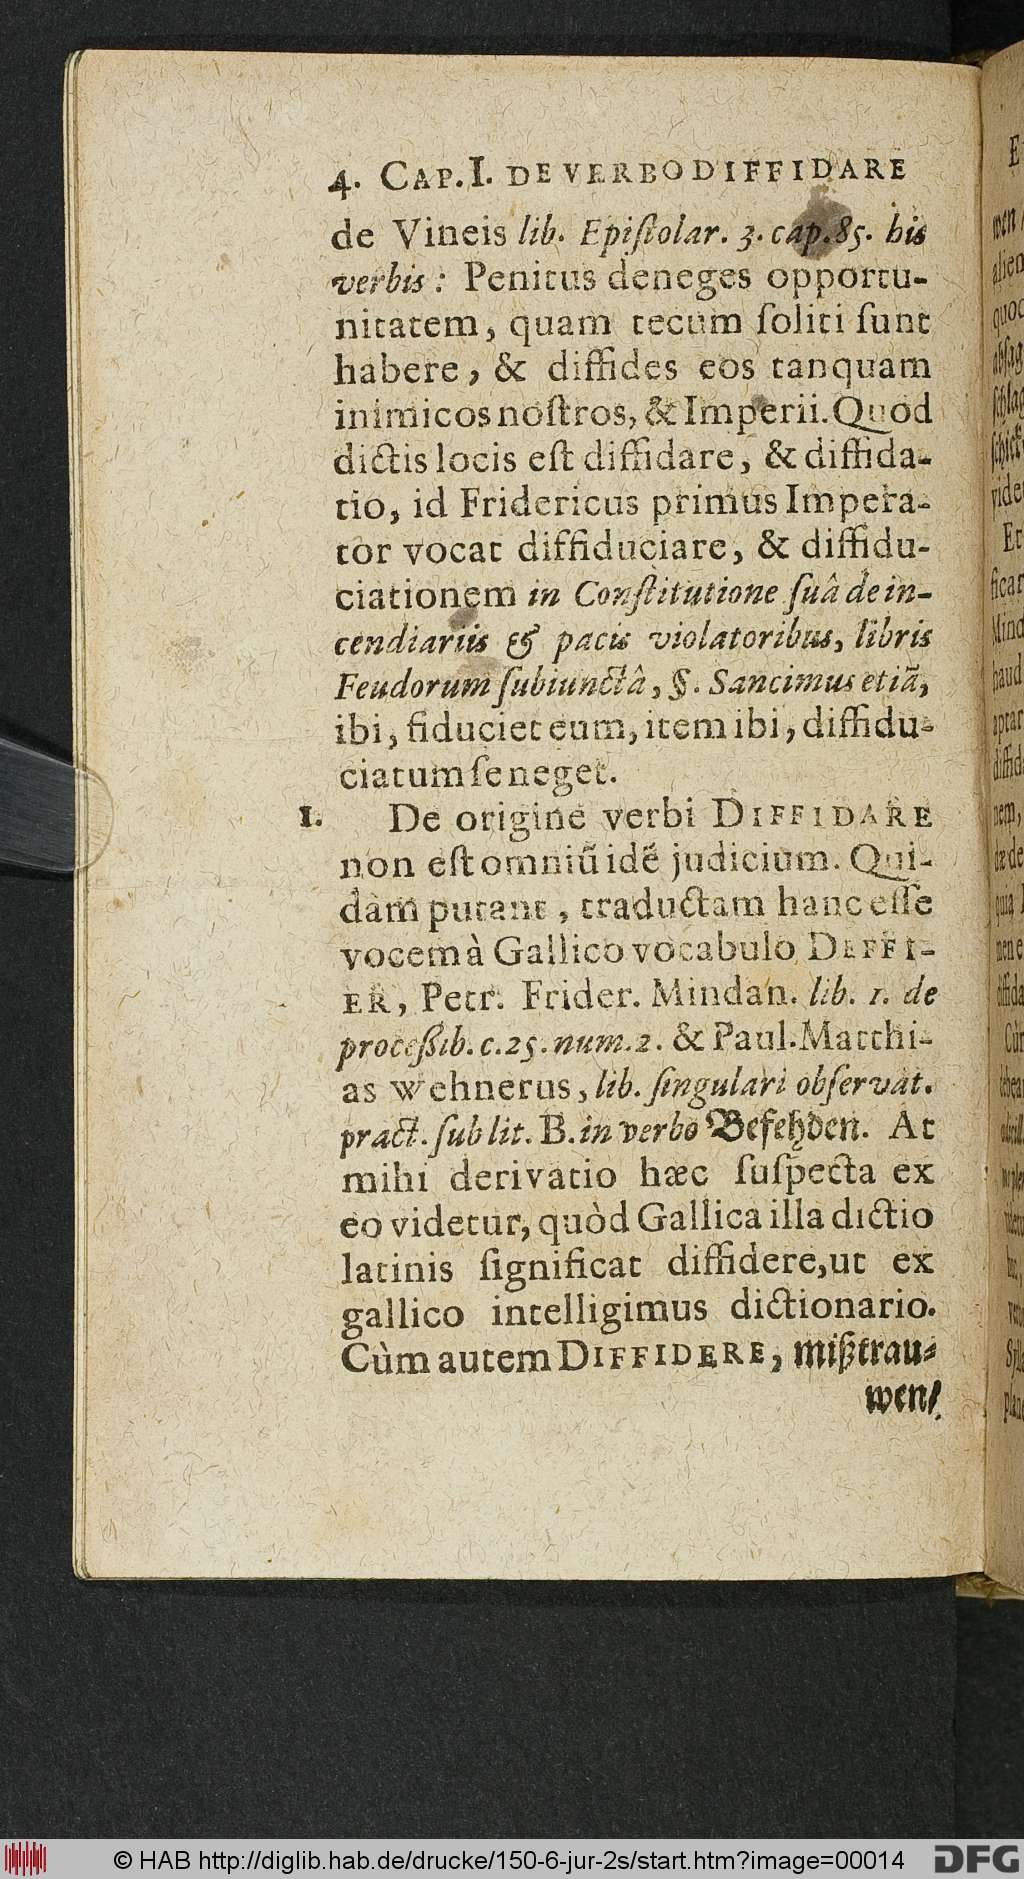 4. CAP. I. DE VERBO DIFFIDARE
de Vineis lib. Epiſtolar. 3. cap. 85. his
verbis: Penitus deneges opportu-
nitatem, quam tecum ſoliti ſunt
habere, & diffides eos tanquam
inimicos noſtros, & Imperii. Quod
dictis locis eſt diffidare, & diffida-
tio, id Fridericus primus Impera-
tor vocat diffiduciare, & diffidu-
ciationem in Conſtitutione ſuâ de in-
cendiariis & pacis violatoribus, libris
Feudorum ſubiunctâ, §. Sancimus etiã,
ibi, fiduciet eum, item ibi, diffidu-
ciatum ſe neget.
1. De origine verbi DIFFIDARE
non eſt omniũ idẽ judicium. Qui-
dam putant, traductam hanc eſſe
vocem à Gallico vocabulo DEFFI-
ER, Petr. Frider. Mindan. lib. 1. de
proceßib. c. 25. num. 2. & Paul. Matthi-
as Wehnerus, lib. ſingulari obſervat.
pract. ſub lit. B. in verbo Befehden. At
mihi derivatio hæc ſuſpecta ex
eo videtur, quòd Gallica illa dictio
latinis ſignificat diffidere, ut ex
gallico intelligimus dictionario.
Cùm autem DIFFIDERE, mißtrau-
wen/
© HAB http://diglib.hab.de/drucke/150-6-jur-2s/start.htm?image=00014
DFG